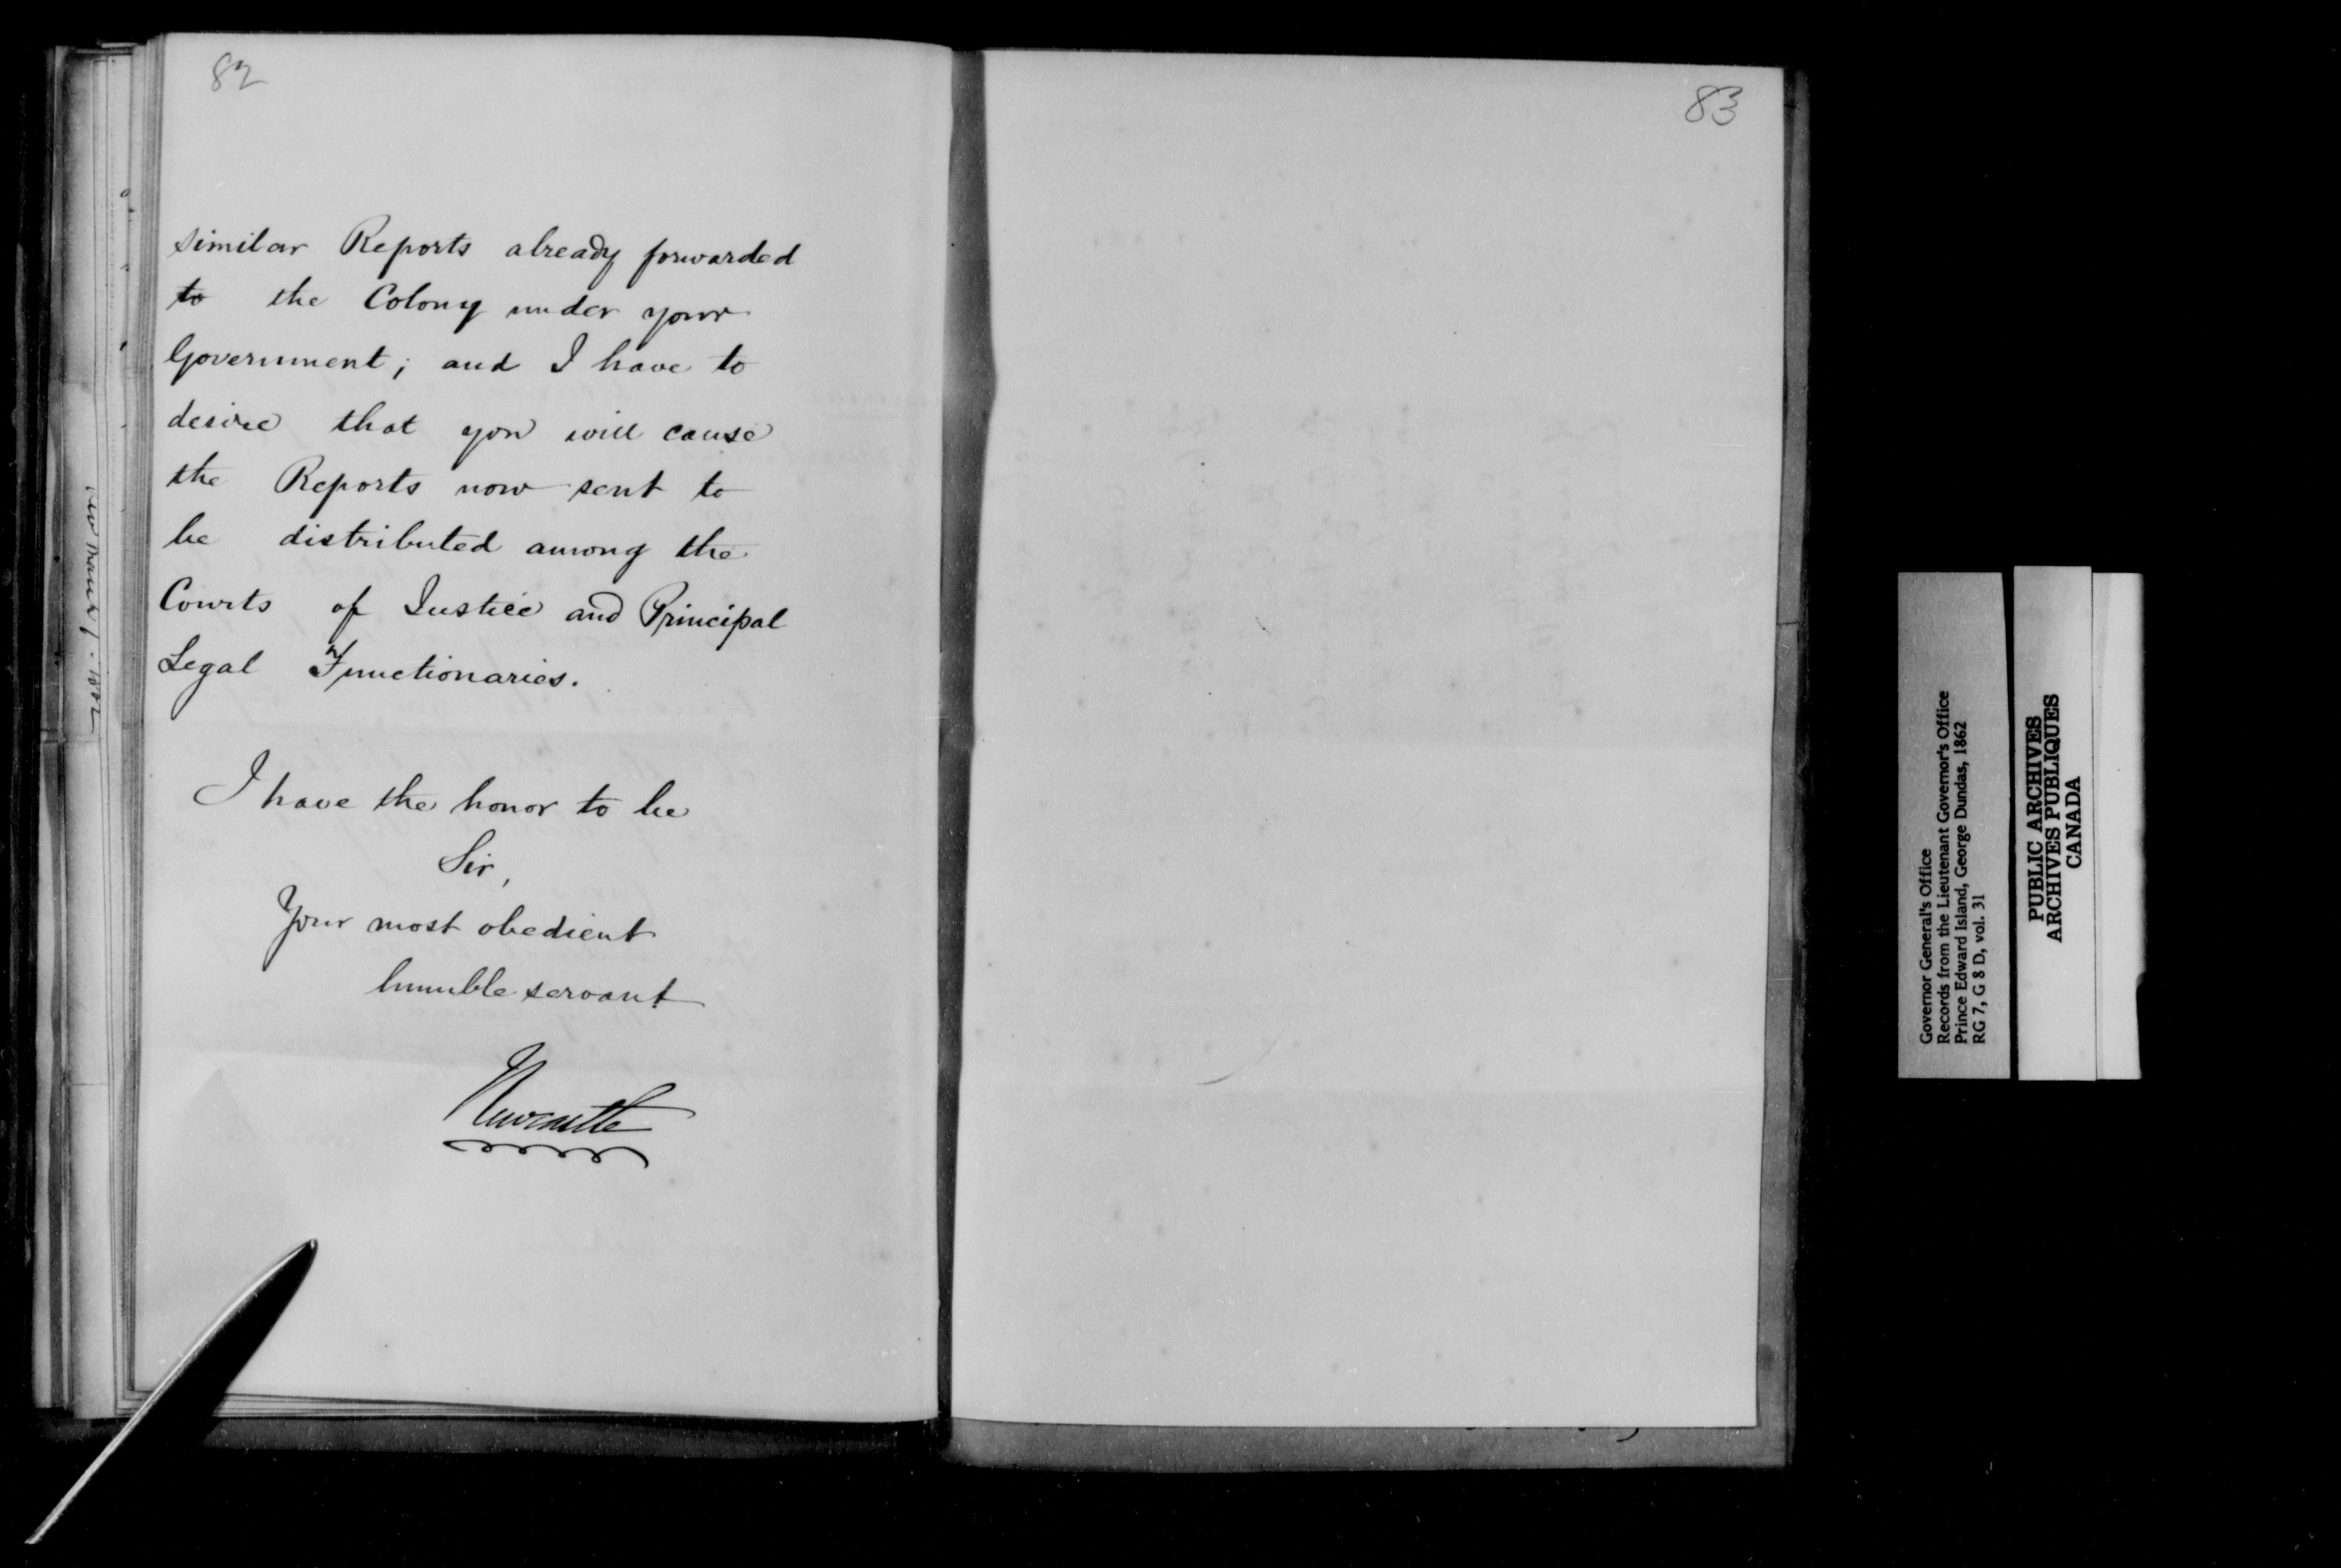 82
similar Reports already forwarded
to the Colony under your
Government; and I have to
desire that you will cause
the Reports now sent to
be distributed among the
Courts of Justice and Principal
Legal Functionaries.
I have the honor to be
Sir,
Your most obedient
humble servant
Newcastle
83
Governor General's Office
Records from the Lieutenant Governor's Office
Prince Edward Island, George Dundas, 1862
RG 7, G 8 D, vol. 31
PUBLIC ARCHIVES
ARCHIVES PUBLIQUES
CANADA